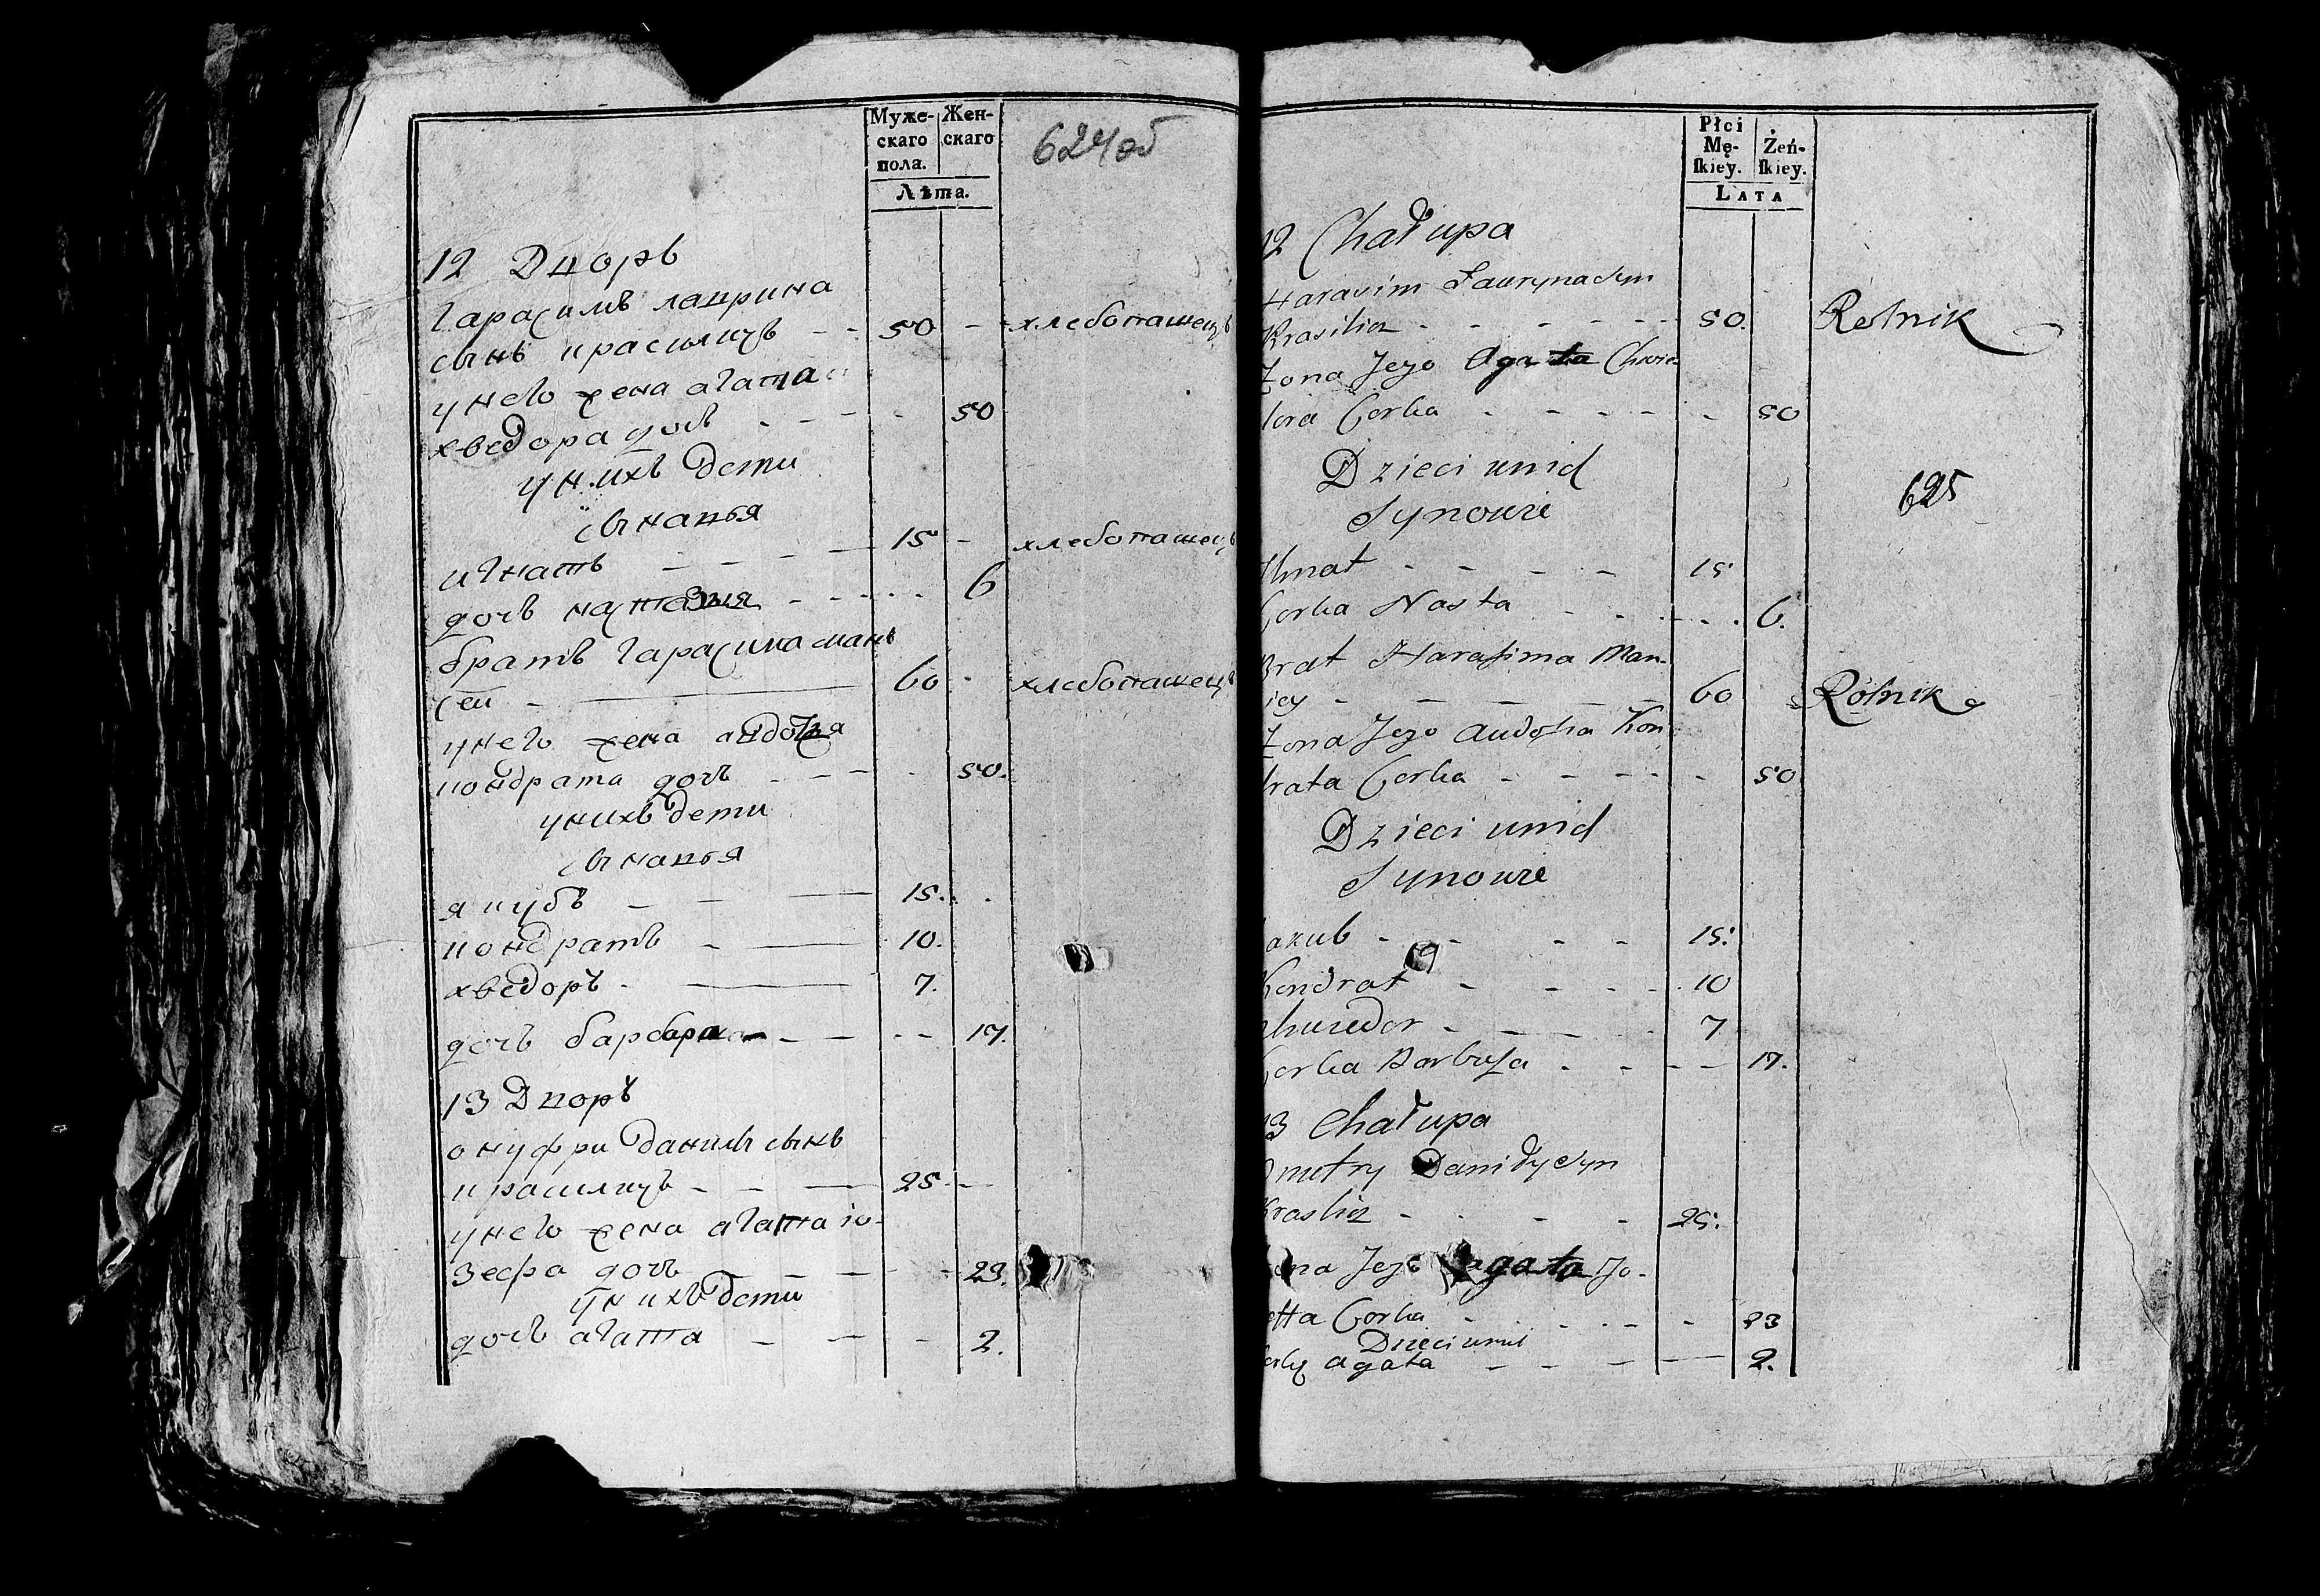 Муже-
скаго
пола.
Жен-
скаго
Лѣта.
624об
12 Дворъ
гарасимъ лаврина
сынъ красилцъ - - 50 - хлебопашецъ
у него жена агата
хведора дочь - - - - 50
у нихъ дети
сыновья
игнатъ - - - 15 - хлебопашецъ
дочь настазия - - - - 6
братъ гарасима мань
сеи - 60 - хлебопашецъ
у него жена авдотя
кондрата дочь - - - - 50.
у нихъ дети
сыновья
якубъ - - - 15.
кондратъ - - 10.
хведоръ - - 7.
дочь барбара - - - - 17.
13 Дворъ
онуфри данилы сынъ
красилцъ - - - 25 -
у него жена агата іо-
зефа дочь - - - - 23.
у нихъ дети
дочь агата - - - 2.
Płci
Mę-
ſkiey.
Żeń-
ſkiey.
LATA
12 Chałupa
Harasim Łauryna Syn
Krasilicz - - - - - - 50. Rolnik
Żona Jego Agata Chwie-
dora Corka - - - - - 50
Dzieci unich
625
Synowie
Ihnat - - - - 15
Corka Nasta - - - - 6.
Brat Harasima Man-
siey - - - - - 60 Rolnik
Żona Jego Audotia Kon-
drata Corka - - - - - 50
Dzieci unich
Synowie
Jakub - - - - 15.
Kondrat - - - - 10
Chwiedor - - - - 7
Corka Barbara - - - - 17.
13 Chałupa
Dmitry Daniły Syn
Kraslicz - - - - 25.
Żona Jego Agata Jo-
Corka - - - - - 23
Dzieci unich
Corka Agata - - - - 2.